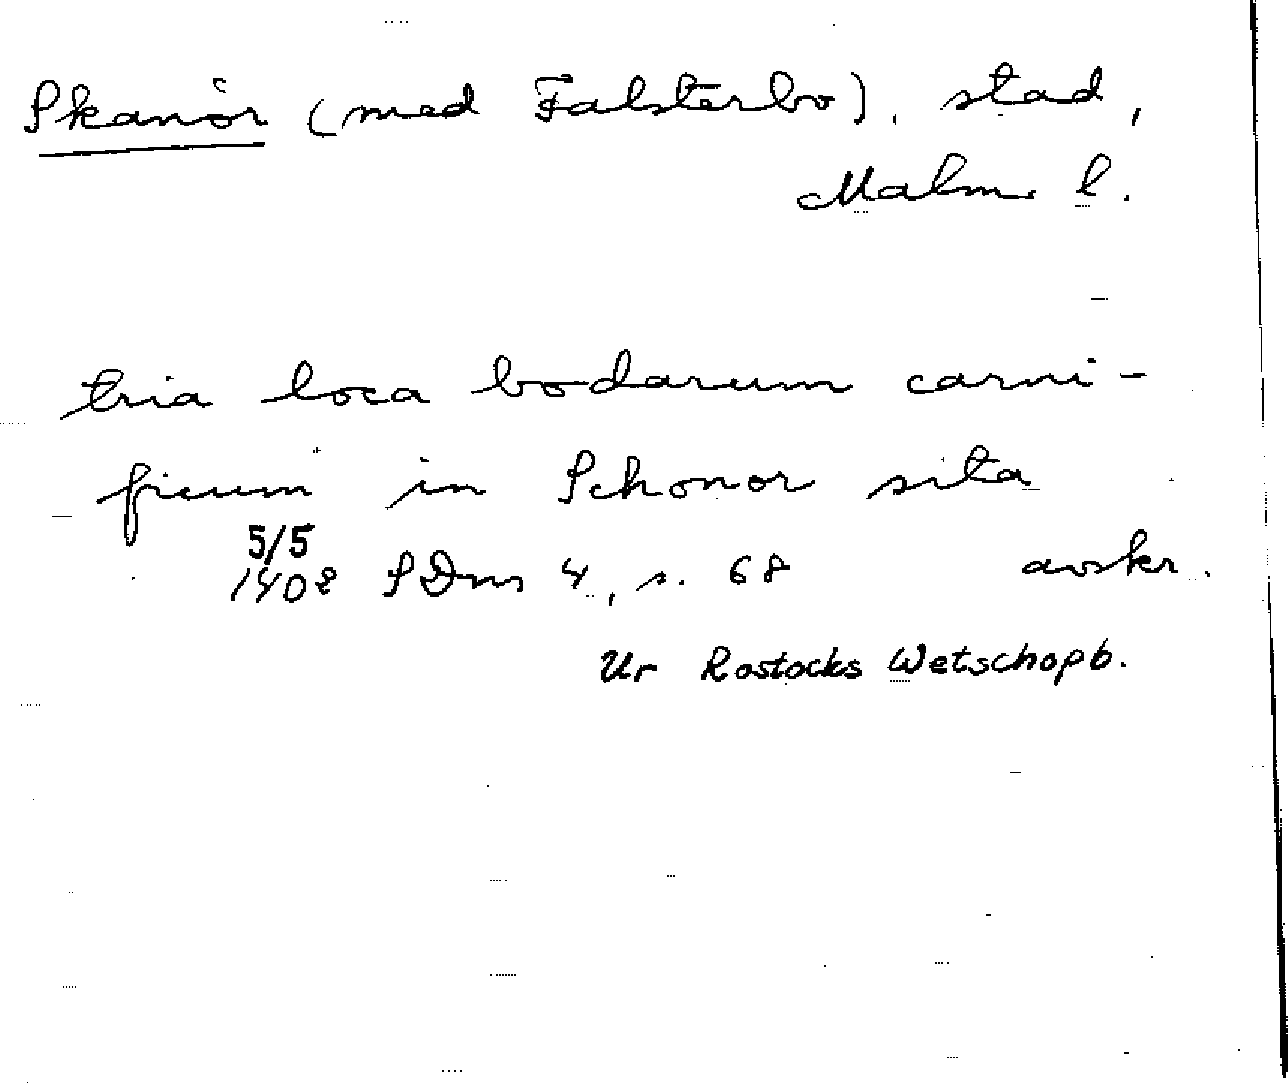 Skanör (med Falsterbo), stad,
Malm. l.
tria loca bodarum carni-
ficum in Schonor sita
5/5
1402 SDns 4, s. 68 avskr.
Ur Rostocks Wetschopb.